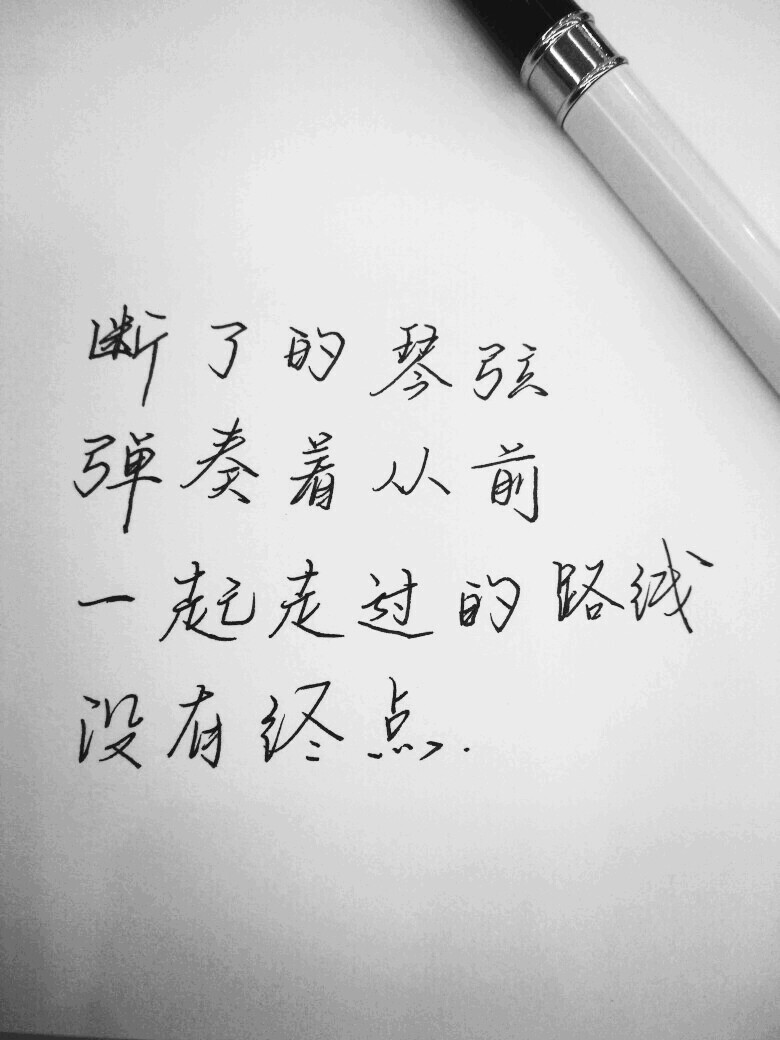 断了的琴弦
弹奏着从前
一起走过的路线
没有终点.